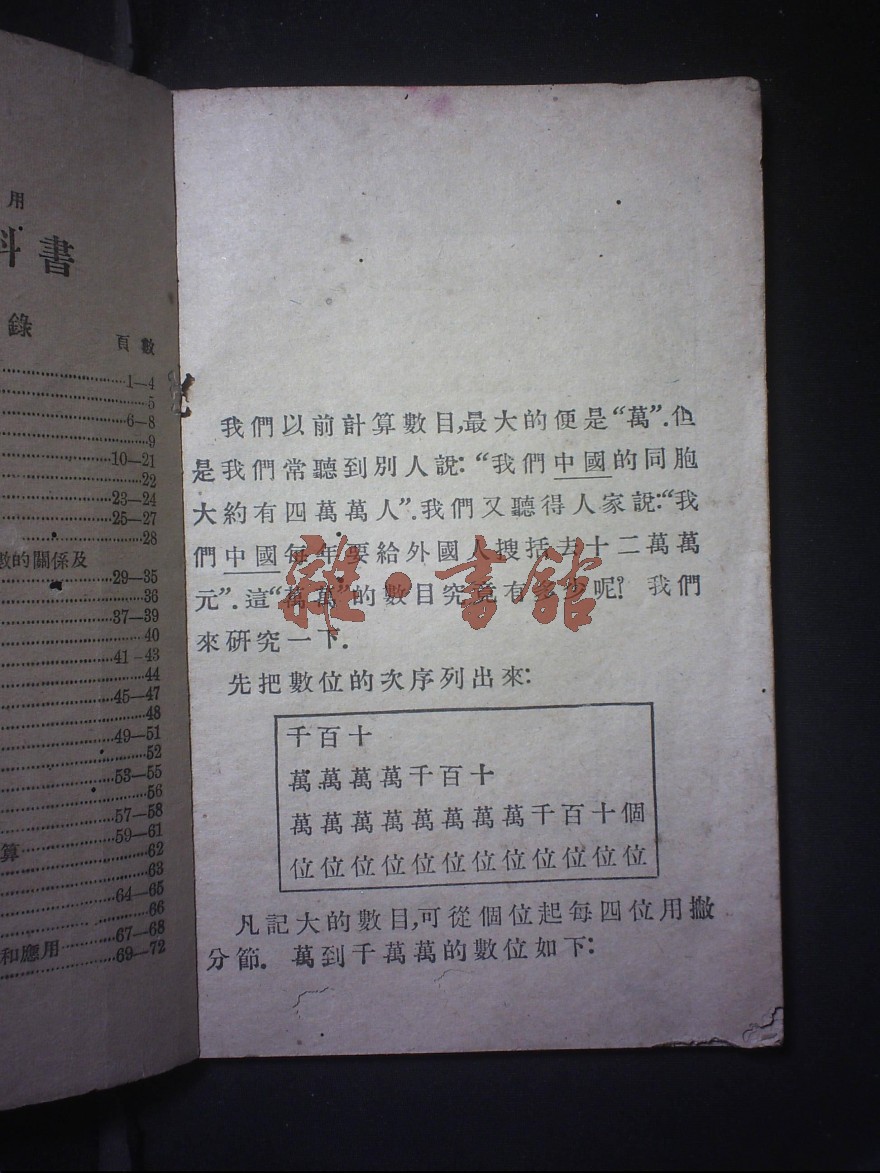 用
科書
錄
頁數
1—4
5
6—8
9
10—21
22
23—24
25—27
28
數的關係及
29—35
36
37—39
40
41—43
44
45—47
48
49—51
52
53—55
56
57—58
59—61
算
62
63
64—65
66
67—68
和應用
69—72
我們以前計算數目,最大的便是“萬”.但
是我們常聽到別人說:“我們中國的同胞
大約有四萬萬人”.我們又聽得人家說:“我
們中國每年要給外國人搜括去十二萬萬
元”.這“萬萬”的數目究竟有多少呢? 我們
來研究一下.
先把數位的次序列出來:
千百十
萬萬萬萬千百十
萬萬萬萬萬萬萬萬千百十個
位位位位位位位位位位位位
凡記大的數目,可從個位起每四位用撇
分節. 萬到千萬萬的數位如下:
雜·書館